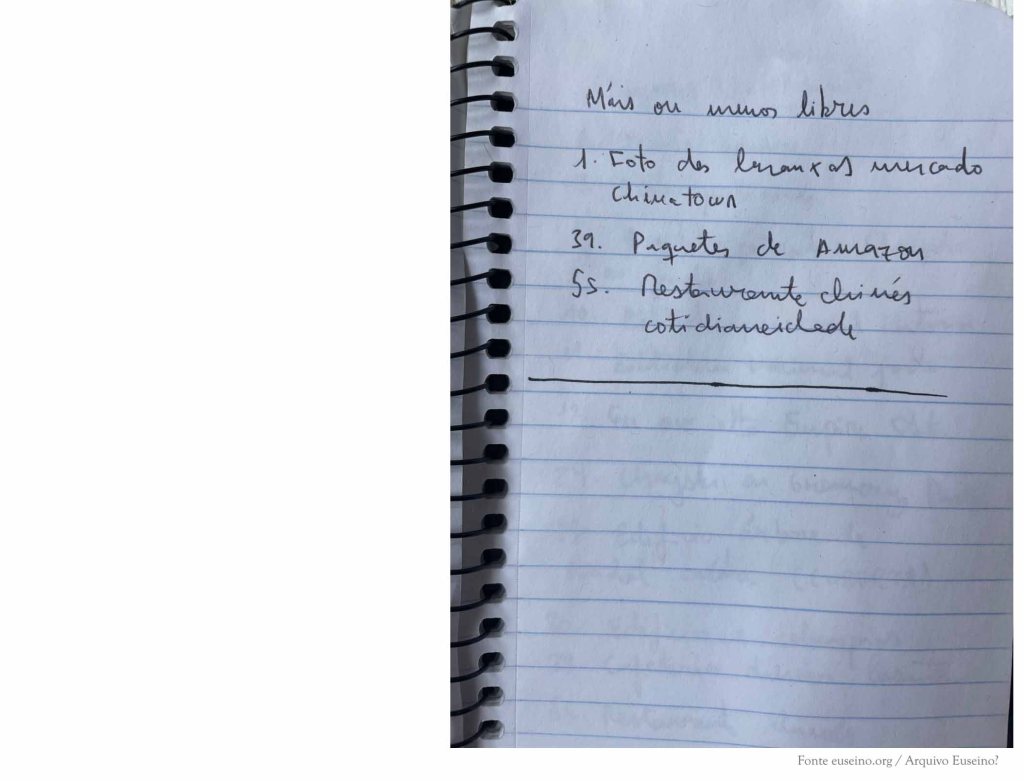 Máis ou menos libres
1. Foto das laranxas mercado
Chinatown
39. Paquetes de Amazon
55. Restaurante chinés
cotidianeidade
Fonte euseino.org / Arquivo Euseino?